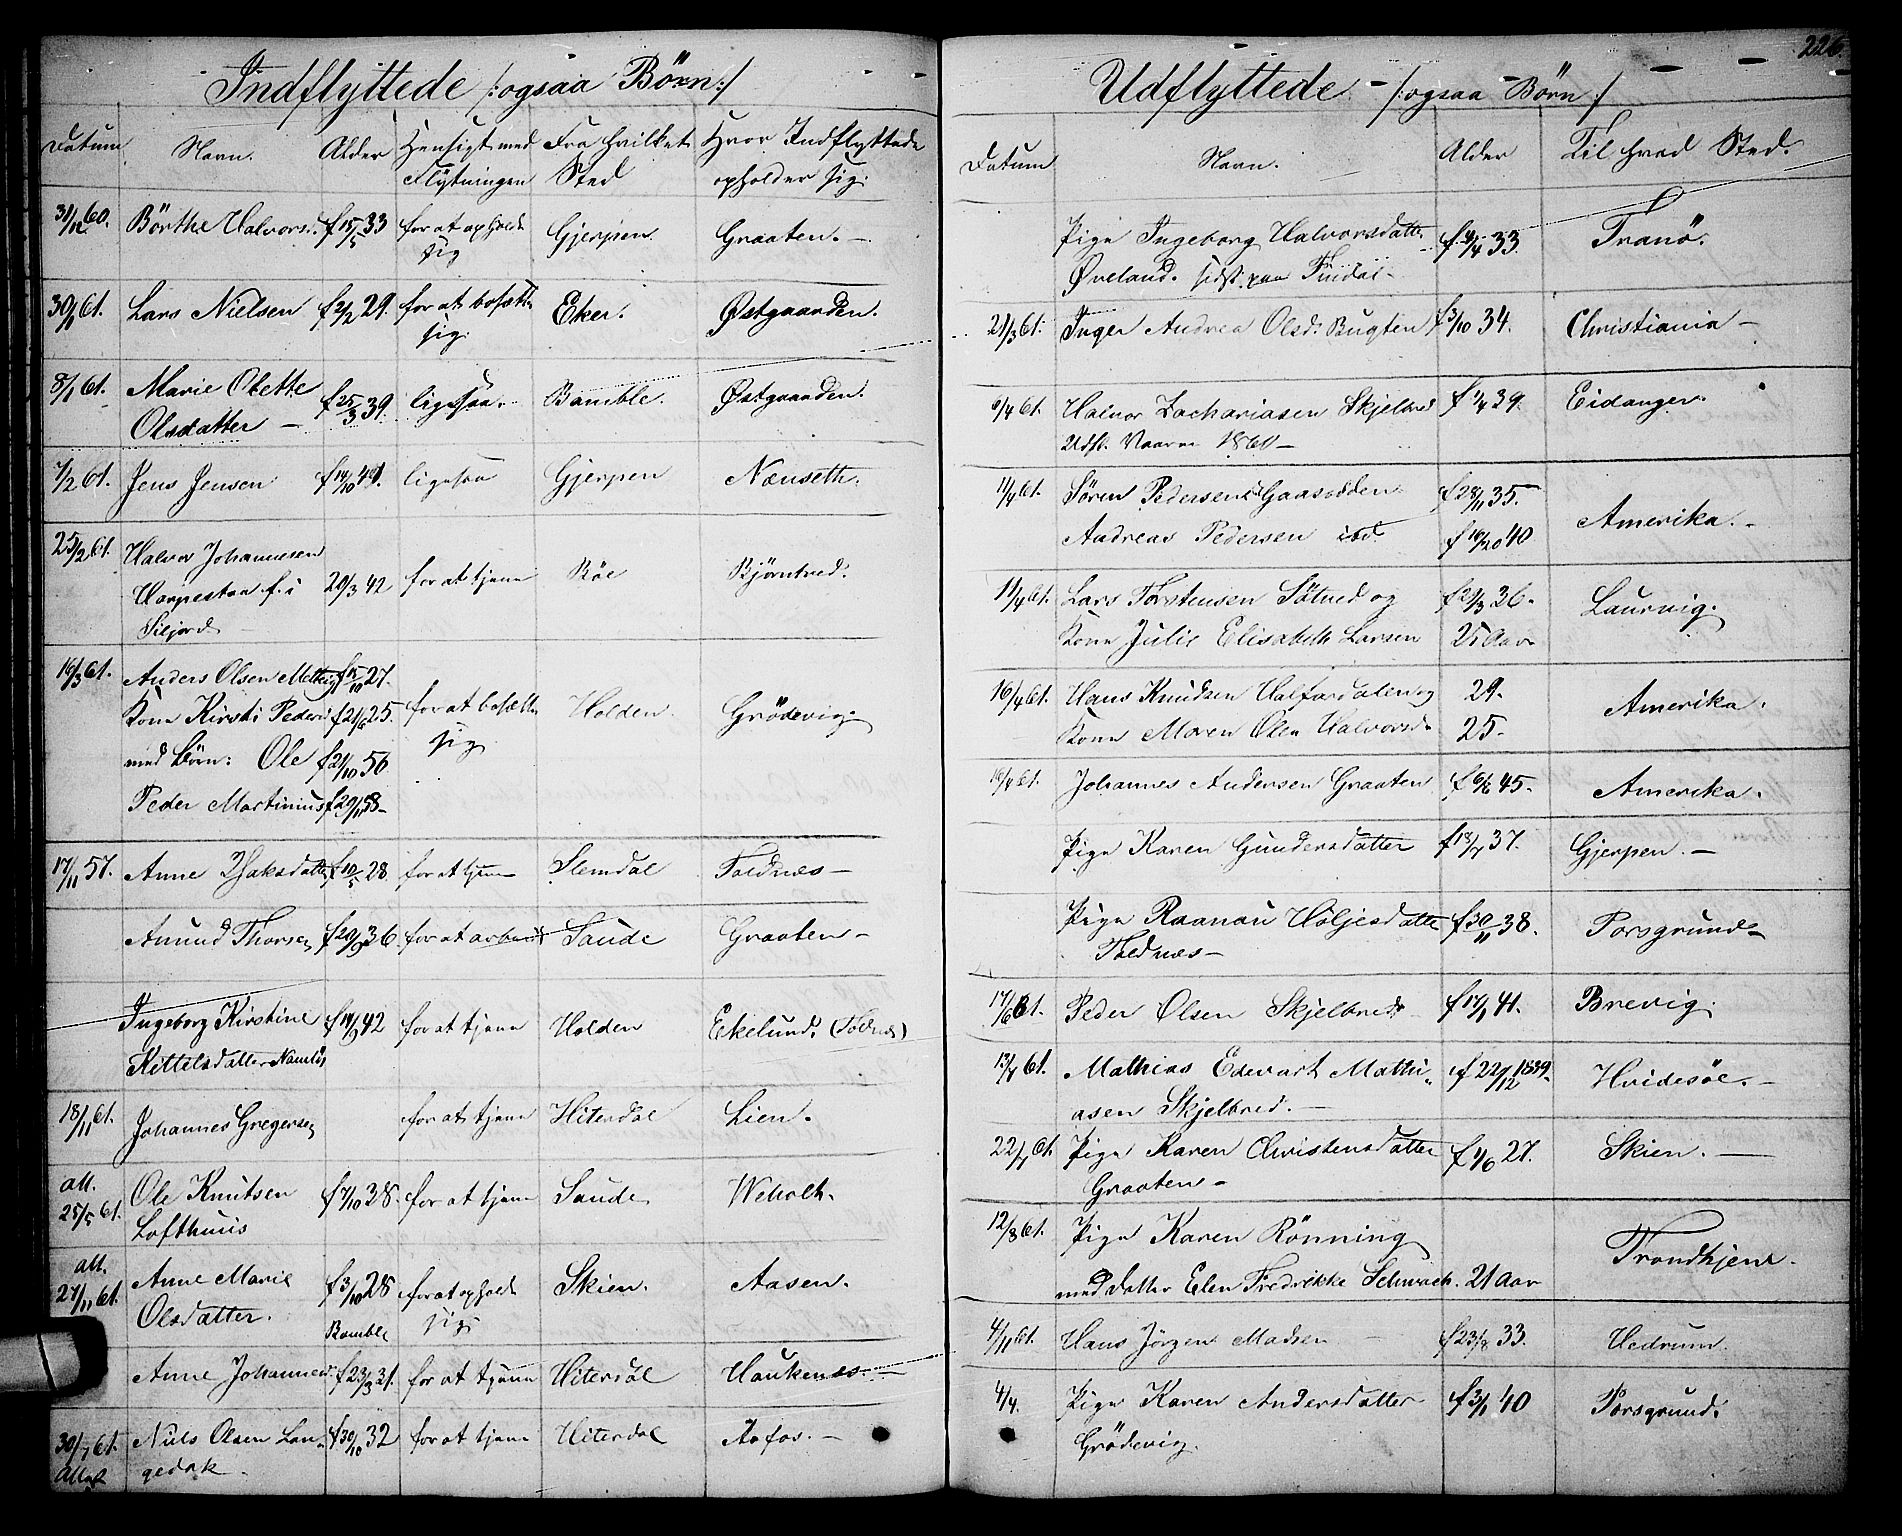 226.
Indflyttede /: ogsaa Børn :/
Datum Navn. Alder Hensigt med Flytningen Fra hvilket Sted Hvor Indflyttede opholder sig.
31/12 60. Börthe Halvorsd. f 15/5 33 for at opholde sig Gjerpen. Graaten. –
30/1 61. Lars Nielsen f 2/2 29. for at bosætte sig. Eker. Østgaarden.
8/1 61. Marie Obette f 25/3 39. ligesaa. Bamble. Østgaarden.
Olsdatter –
7/2 61. Jens Jensen f 14/10 41. ligesaa Gjerpen Nenseth.
25/2 61. Halvor Johannesen 20/3 42 for at tjene Böe Bjørntved.
Harpestan f. i
Siljord
16/3 61. Anders Olsen f 15/10 27. for at bosætte sig Holden. Grödevig.
Kone Kirsti Pedersd f 21/6 25.
med Börn: Ole f 21/10 56
Peder Martinius f 29/11 58 –
17/11 57. Anne Isaksdatter f 10/5 28 for at tjene Slemdal Toldnæs –
Amund Thorsen f 20/9 36 for at arbeide Saude Graaten –
Ingeborg Kirstine f 14/9 42 for at tjene Holden Eekelund. (Toldnæs)
Kittelsdatter
18/11 61. Johannes Gregersen for at tjene Hiterdal Lien.
att. 25/5 61. Ole Knutsen f 7/10 38. for at tjene Saude Weholt.
Lofthuus
att. 27/11 61. Anne Marie f 3/10 28 for at opholde sig. Skien. Aasen.
Olsdatter. Bamble
Anne Johannesd f 23/3 31. for at tjene Hiterdal Haukenes. –
30/7 61. Nils Olsen Lan- f 30/10 32 for at tjene Hiterdal Aafos. –
Attest gedok.
Udflyttede – /: ogsaa Børn :/
Datum Navn. Alder Til hvad Sted.
Pige Ingeborg Halvorsdatter f. 4/4 33. Tranö.
Øveland. sidst paa
21/3 61. Inger Andrea Olsd. Bugten f 3/10 34. Christiania –
9/4 61. Halvor Zachariasen Skjelbred f 1/4 39. Eidanger.
Udfl. Vaaren 1860 –
11/4 61. Sören Pedersen Gaasodden f 28/11 35. Amerika. –
Andreas Pedersen ibd. 40
11/4 61. Lars Torstensen Sötved og f 21/3 36. Laurvig.
Kone Julie Elisabeth Larsen 25 Aar
16/4 61. Hans Knudsen Halfardalen og 29. Amerika.
Kone Maren Olea Halvorsd. 25.
16/4 61. Johannes Andersen Graaten f 6/6 45. Amerika.
Pige Karen Gundersdatter f 18/7 37. Gjerpen. –
Pige Raanau Höljesdatter f 30/11 38. Porsgrund –
Toldnæs –
17/6 61. Peder Olsen Skjelbred f 17/1 41. Brevig.
13/7 61. Mathias Edevart Mathi- f 22/12 1839. Hvidesöe. –
asen Skjelbred. –
22/7 61. Pige Karen Christensdatter f 4/6 27. Skien. –
Graaten –
12/8 61. Pige Karen Rönning Trondhjem.
med datter Elen Fredrikke Schwach. 21 Aar
4/11 61. Hans Jörgen Madsen – f 23/8 33. Hedrum.
4/4. Pige Karen Andersdatter f 3/1 40 Porsgrund.
Grödevig.